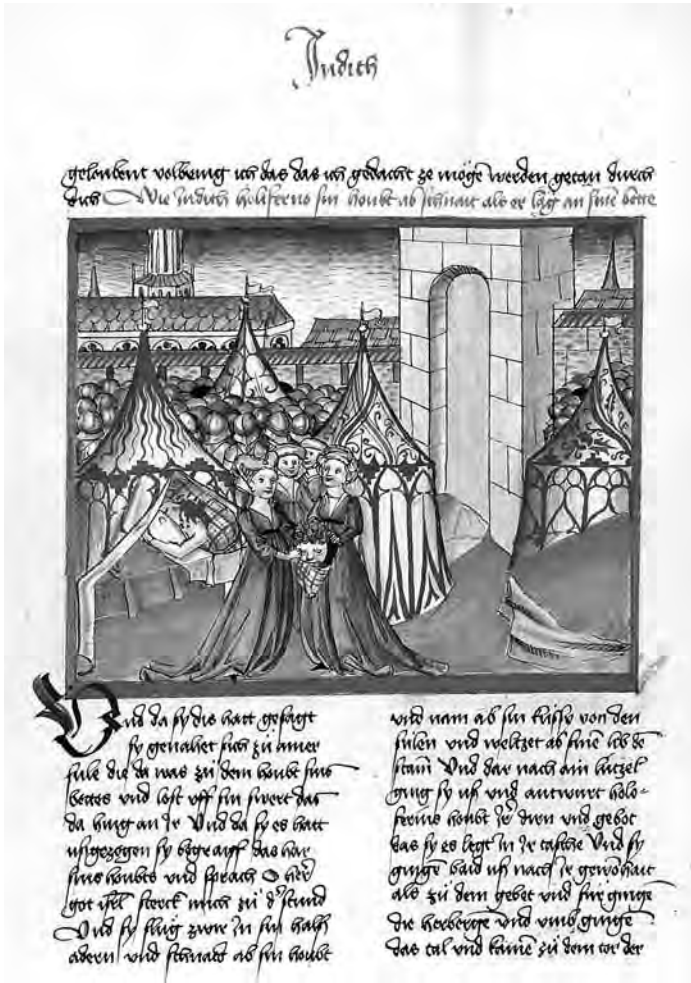 Judith
geloubent volbring ich das das ich gedacht ze mögē werden getan durch
dich Wie Judith holiferno sin houbt ab schnait als er lag an sinē bette
Und da sy dis hatt gesagt
sy genahet sich zů ainer
sule die da was zů dem houbt sins
bettes vnd lost vff sin swert das
da hing an ir Und da sy es hatt
usgezogen sy begraiff das har
sins houbts vnd sprach O her
got isrl sterck mich zů dˢ stund
Und sy slůg zwir in sin halsz
adern vnd schnaid ab sin houbt
vnd nam ab sin küssy von den
sulen vnd weltzet ab sinē lib dē
stam Und dar nach ain lützel
ging sy us vnd antwurt holo-
fernus houbt ir dirn vnd gebot
das sy es legt in ir tasche Und sy
gingē baid us nach ir gewohait
als zů dem gebet vnd für gingē
die herbergē vnd umb gingē
das tal vnd kamē zů dem tor der